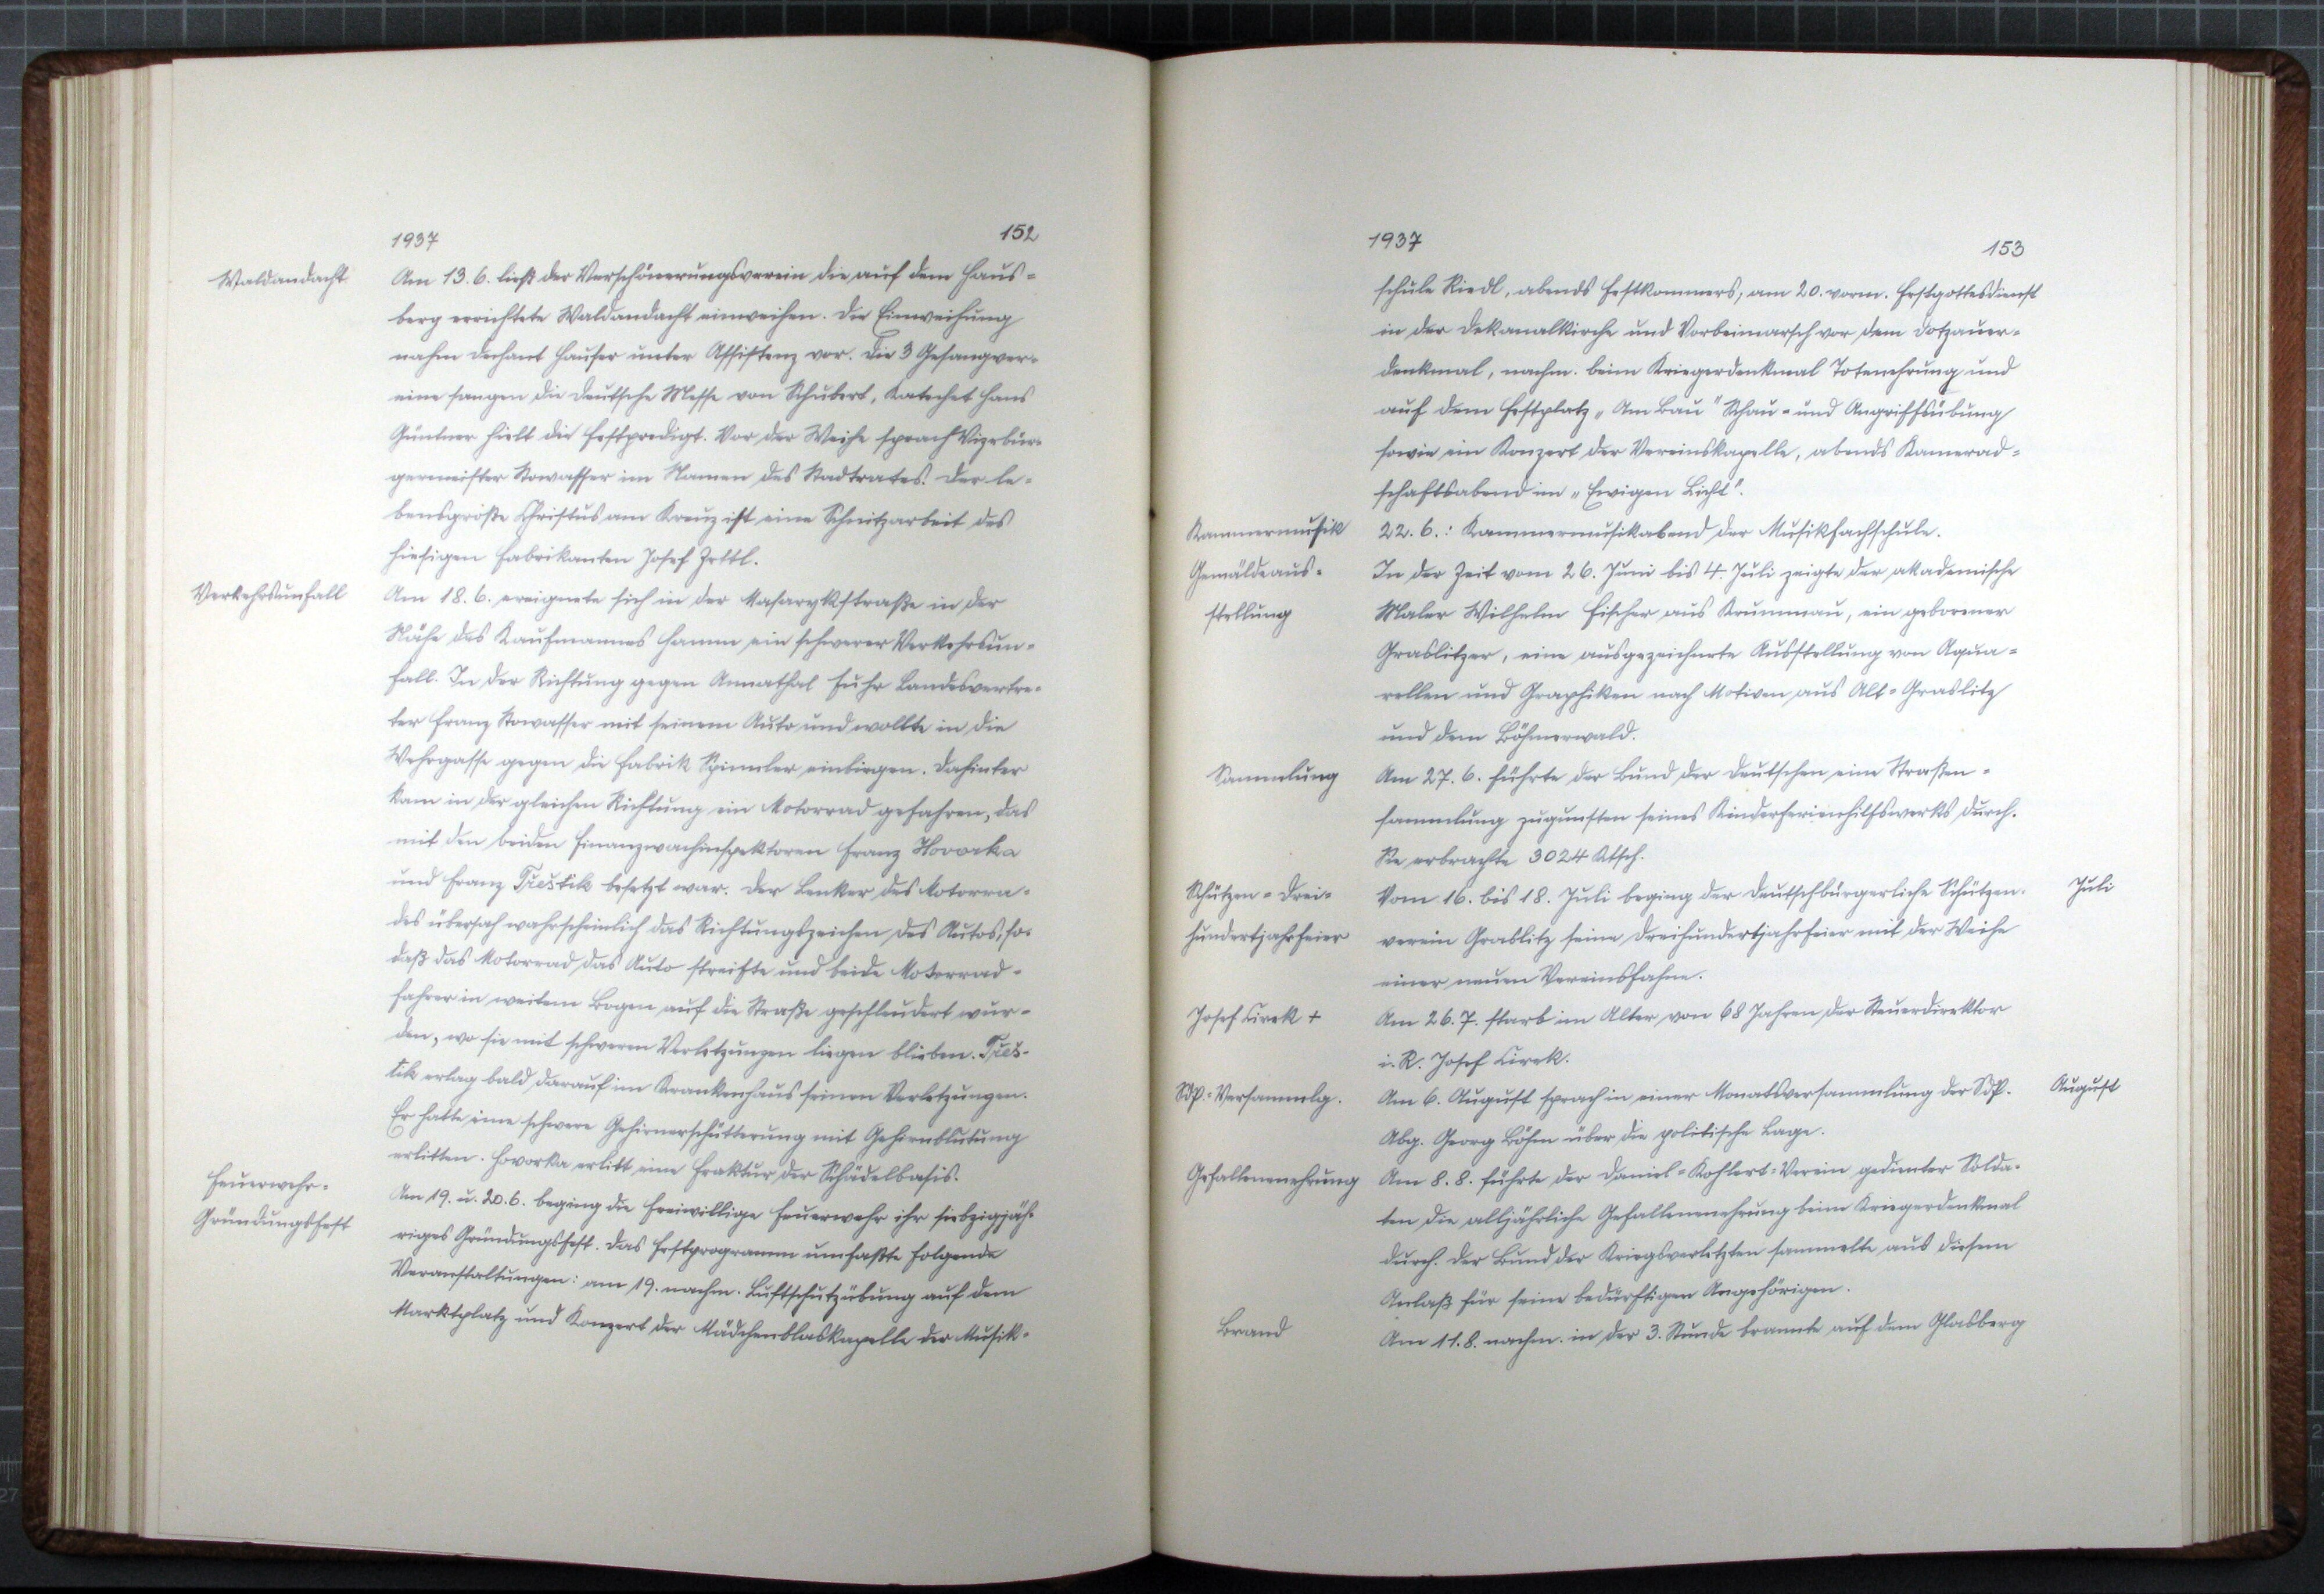 1937
152
Waldandacht
Am 13. 6. ließ der Verschönerungsverein die auf dem Haus-
berg errichtete Waldandacht einweihen. Die Einweihung
nahm Dechant Hauser unter Assistenz vor. Die 3 Gesangver-
eine sangen die Deutsche Messe von Schubert, Katechet Hans
Güntner hielt die Festpredigt. Vor der Weihe sprach Vizebür-
germeister Stowasser im Namen des Stadtrates. Der le-
bensgroße Christus am Kreuz ist eine Schnitzarbeit des
hiesigen Fabrikanten Josef Zettl.
Verkehrsunfall
Am 18. 6. ereignete sich in der Masarykstraße in der
Nähe des Kaufmannes Hamm ein schwerer Verkehrsun-
fall. In der Richtung gegen Annathal fuhr Landesvertre-
ter Franz Stowasser mit seinem Auto und wollte in die
Wehrgasse gegen die Fabrik Spinnler einbiegen. Dahinter
kam in der gleichen Richtung ein Motorrad gefahren, das
mit den beiden Finanzwachinspektoren Franz Hovorka
und Franz Třeštik besetzt war. Der Lenker des Motorra-
des übersah wahrscheinlich das Richtungszeichen des Autos, so-
daß das Motorrad das Auto streifte und beide Motorrad-
fahrer in weitem Bogen auf die Straße geschleudert wur-
den, wo sie mit schweren Verletzungen liegen blieben. Třeš-
tik erlag bald darauf im Krankenhaus seinen Verletzungen.
Er hatte eine schwere Gehirnerschütterung mit Gehirnblutung
erlitten. Hovorka erlitt eine Fraktur der Schädelbasis.
Feuerwehr-
Gründungsfest
Am 19. u. 20. 6. beging die Freiwillige Feuerwehr ihr siebzigjäh-
riges Gründungsfest. Das Festprogramm umfaßte folgende
Veranstaltungen: am 19. nachm. Luftschutzübung auf dem
Marktplatz und Konzert der Mädchenblaskapelle der Musik-
1937
153
schule Riedl, abends Festkommers, am 20. vorm. Festgottesdienst
in der Dekanalkirche und Vorbeimarsch vor dem Dotzauer-
denkmal, nachm. beim Kriegerdenkmal Totenehrung und
auf dem Festplatz „Am Bau" Schau- und Angriffsübung
sowie ein Konzert der Vereinskapelle, abends Kamerad-
schaftsabend im „Ewigen Licht".
Kammermusik
22. 6.: Kammermusikabend der Musikfachschule.
Gemäldeaus-
stellung
In der Zeit vom 26. Juni bis 4. Juli zeigte der akademische
Maler Wilhelm Fischer aus Krummau, ein geborener
Graslitzer, eine ausgezeichnete Ausstellung von Aqua-
rellen und Graphiken nach Motiven aus Alt-Graslitz
und dem Böhmerwald.
Sammlung
Am 27. 6. führte der Bund der Deutschen eine Straßen-
sammlung zugunsten seines Kinderferienhilfswerks durch.
Sie erbrachte 3024 Ktsch.
Schützen-Drei-
hundertjahrfeier
Vom 16. bis 18. Juli beging der Deutschbürgerliche Schützen-
Juli
verein Graslitz seine Dreihundertjahrfeier mit der Weihe
einer neuen Vereinsfahne.
Josef Cirek +
Am 26. 7. starb im Alter von 68 Jahren der Steuerdirektor
i. R. Josef Cirek.
SdP.-Versammlg.
Am 6. August sprach in einer Monatsversammlung der SdP.
August
Abg. Georg Böhm über die politische Lage.
Gefallenenehrung
Am 8. 8. führte der Daniel-Kohlert-Verein gedienter Solda-
ten die alljährliche Gefallenenehrung beim Kriegerdenkmal
durch. Der Bund der Kriegsverletzten sammelte aus diesem
Anlaß für seine bedürftigen Angehörigen.
Brand
Am 11. 8. nachm. in der 3. Stunde brannte auf dem Glasberg